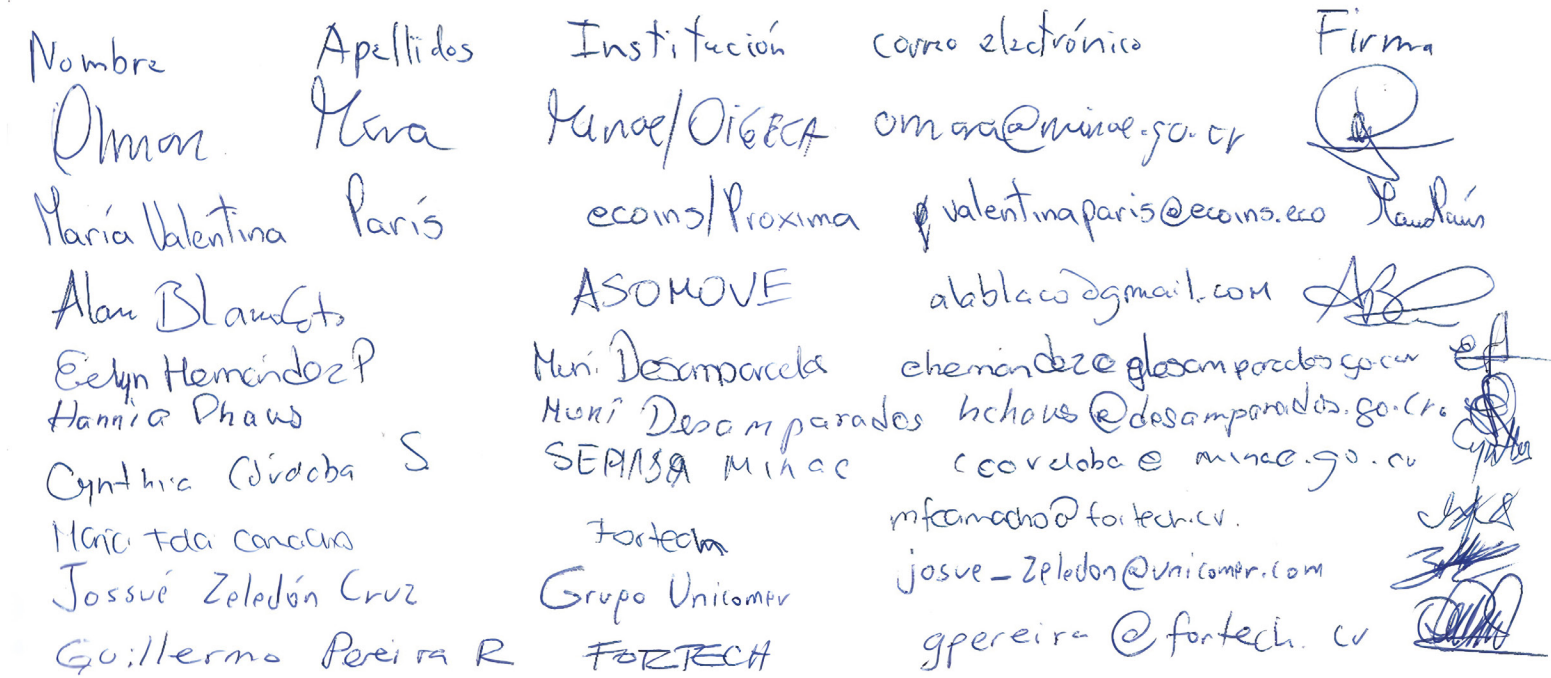 Nombre Apellidos Institución correo electrónico Firma
Olman Mora Minae/DiGECA omora@minae.go.cr
María Valentina París ecoins/Proxima valentinaparis@ecoins.eco
Alan Blanco Coto ASOMOVE alablaco@gmail.com
Evelyn Hernández P Muni. Desamparados ehernandez@desamparados.go.cr
Hannia Chaves Muni Desamparados hchaves@desamparados.go.cr.
Cynthia Córdoba S SEPLASA Minae ccordoba@minae.go.cr Cynthia
María Fda Camacho Fortech mfcamacho@fortech.cr.
Jossué Zeledón Cruz Grupo Unicomer josue_zeledon@unicomer.com
Guillermo Pereira R FORTECH gpereira@fortech.cr